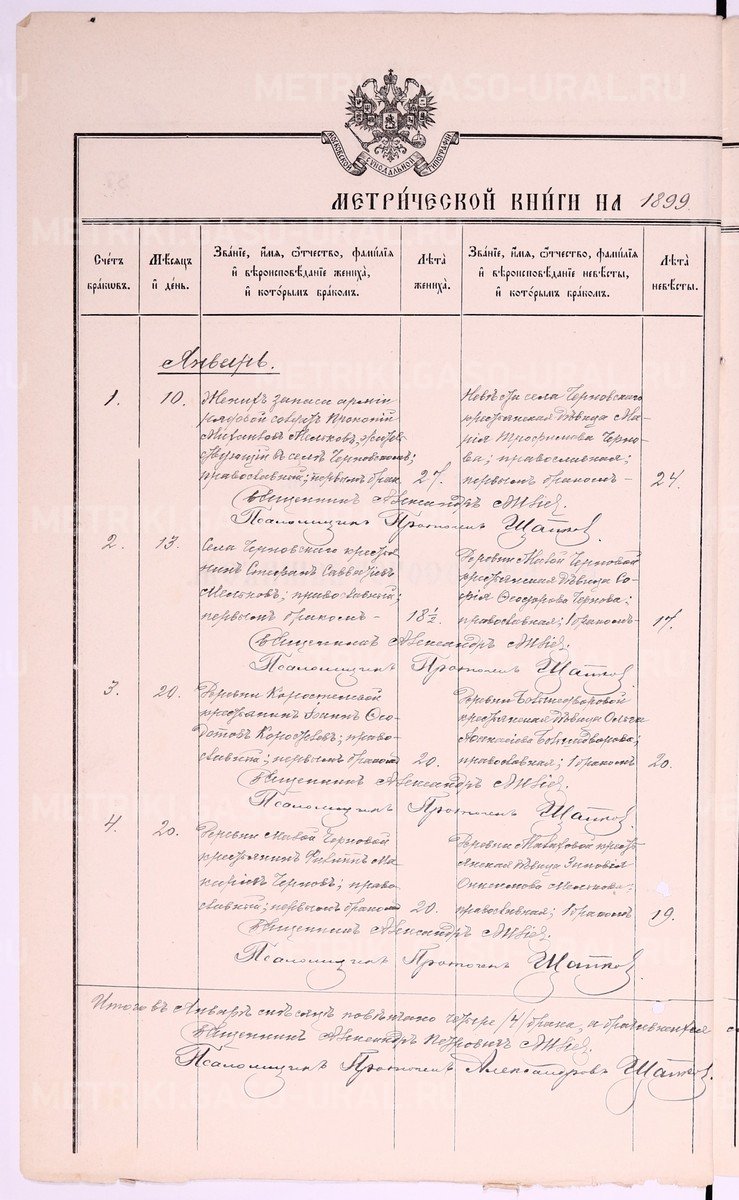 METRIKI.GASO-URAL.RU
МОСКОВСКОЙ СѴНОДАЛЬНОЙ ТИПОГРАФІИ
МЕТРИ́ЧЕСКОЙ КНИ́ГИ НА 1899
Сче́тъ бра́кѡвъ.
Мѣ́сѧцъ и҆ де́нь.
Зва́нїе, и҆́мѧ, ѻ҆́тчество, фами́лїѧ и҆ вѣроисповѣ́данїе жениха̀, и҆ кото́рымъ бра́комъ.
Лѣ́та жениха̀.
Зва́нїе, и҆́мѧ, ѻ҆́тчество, фами́лїѧ и҆ вѣроисповѣ́данїе невѣ́сты, и҆ кото́рымъ бра́комъ.
Лѣ́та невѣ́сты.
Январь.
1.
10.
Женихъ запаса арміи
рядовой солдатъ Прокопій
Михаиловъ
въ селѣ Черновскомъ;
православный; первымъ брак.
27.
Невѣста села Черновскаго
крестьянская дѣвица Ма-
рія Трофимова Черно-
ва; православная;
первымъ бракомъ –
24.
Священникъ Александръ
Псаломщикъ Протогенъ
2.
13.
Села Черновскаго крестья-
нинъ Стефанъ Савватіевъ
православный;
первымъ бракомъ –
18 1/2
Деревни Малой Черновой
крестьянская дѣвица Со-
фія Ѳеодорова Чернова;
православная; 1 бракомъ
17.
Священникъ Александръ
Псаломщикъ Протогенъ
3.
20.
Деревни
крестьянинъ Іоаннъ Ѳео-
дотовъ право-
славный; первымъ бракомъ
20.
Деревни
крестьянская дѣвица Ольга
православная; 1 бракомъ
20.
Священникъ Александръ
Псаломщикъ Протогенъ
4.
20.
Деревни Малой Черновой
крестьянинъ Филиппъ Ма-
Черновъ; право-
славный; первымъ бракомъ
20.
Деревни крест-
янская дѣвица Зиновія
православная; 1 бракомъ
19.
Священникъ Александръ
Псаломщикъ Протогенъ
Итого въ Январѣ мѣсяцѣ повѣнчано четыре /4/ брака,
Священникъ Александръ Петровичъ
Псаломщикъ Протогенъ Александровъ